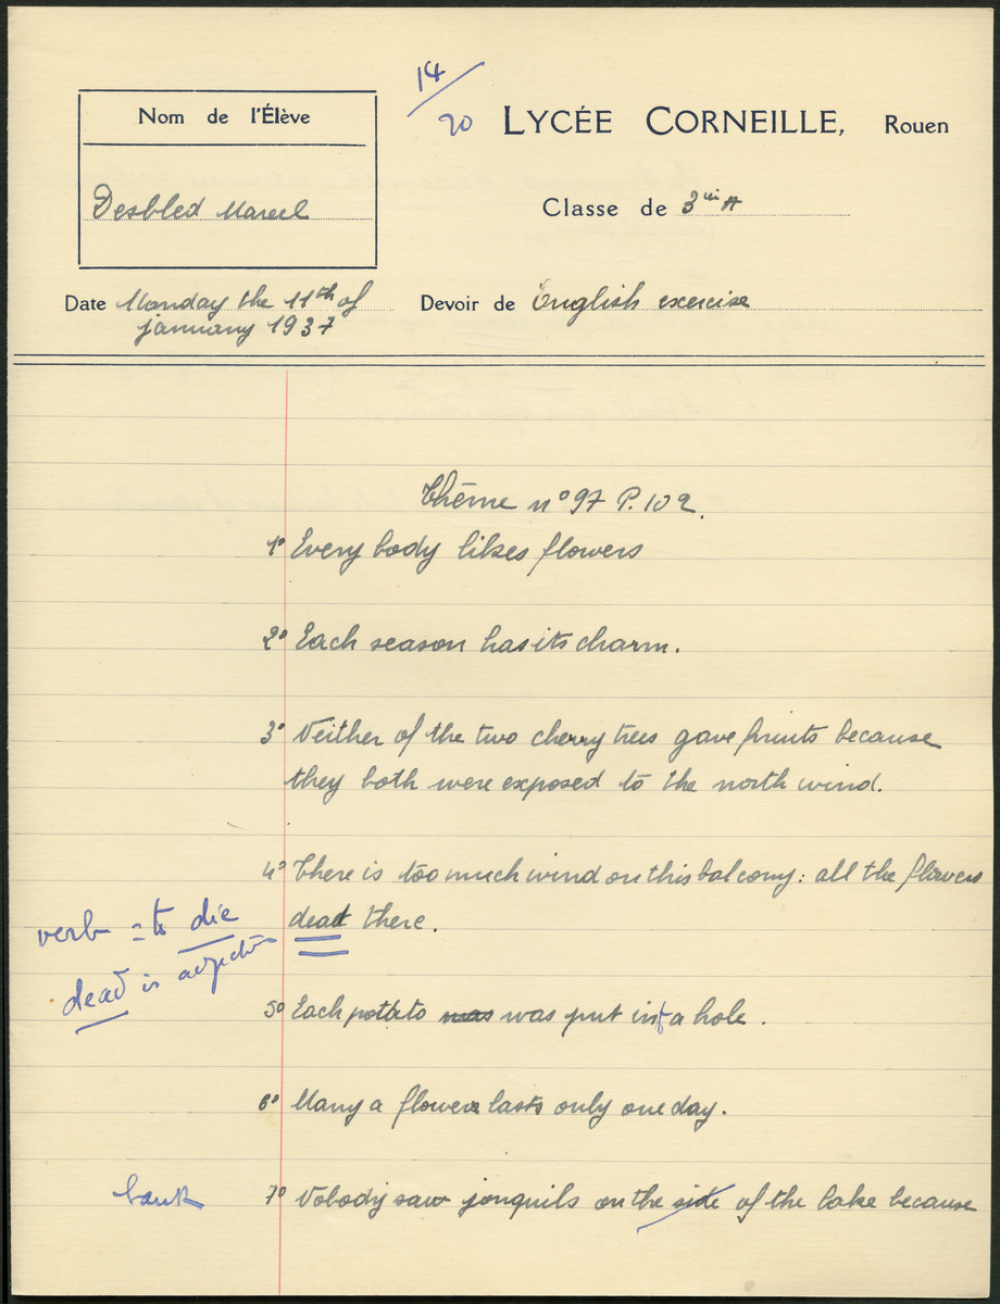 14/20
Nom de l'Élève
LYCÉE CORNEILLE, Rouen
Desbled Marcel
Classe de 3ème A
Date Monday the 11th of
january 1937
Devoir de English exercise
Thême n° 97 P. 102.
1° Every body likes flowers
2° Each season has its charm.
3° Neither of the two cherry trees gave fruits because
they both were exposed to the north wind.
4° There is too much wind on this balcony: all the flowers
dead there.
verb = to die
dead is adjectiv
5° Each potato was was put in a hole.
6° Many a flower lasts only one day.
bank
7° Nobody saw jonquils on the side of the lake because